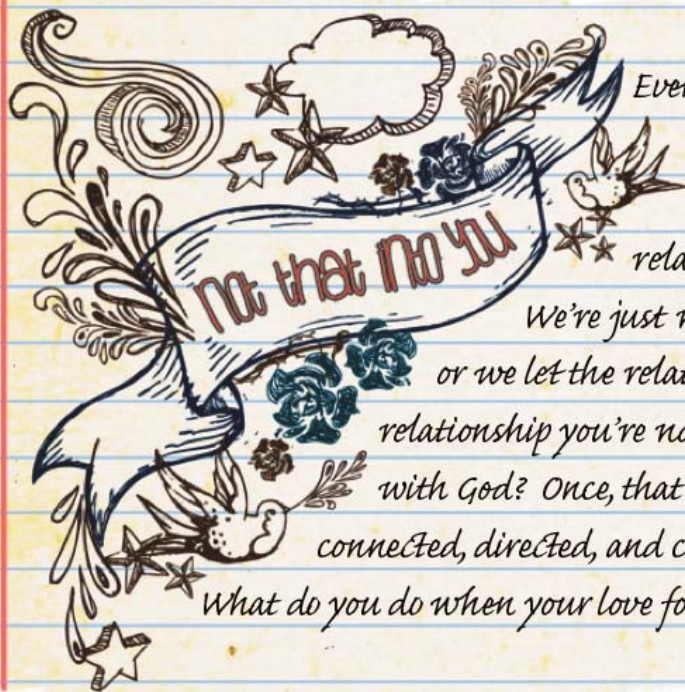 Ever
not that into you
rela
We're just
or we let the relat
relationship you're no
with God? Once, that
connected, directed, and c
What do you do when your love fo